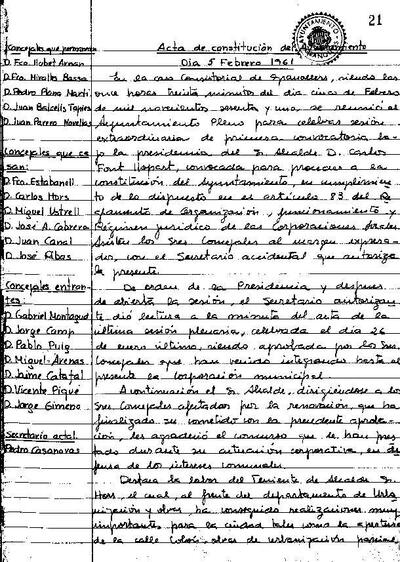 21
AYUNTAMIENTO
Concejales que permanecen
D. Fco. Llobet Arnan
D. Fco. Mirallas Bassa
D. Pedro Plans Martí
D. Juan Balcells Tapies
D. Juan Parera Novellas
Concejales que cesan:
D. Fco. Estabanell
D. Carlos Hors
D. Miguel Ustrell
D. José A. Cabrera
D. Juan Canal
D. José Ribas
Concejales entrantes:
D. Gabriel Montagud
D. Jorge Camp
D. Pablo Puig
D. Miguel Arenas
D. Jaime Catafal
D. Vicente Piqué
D. Jorge Gimeno
Secretario actal.
Pedro Casanovas
Acta de constitución del Ayuntamiento
Dia 5 Febrero 1961
En la casa Consistorial de Granollers, siendo las
once horas treinta minutos del día cinco de Febrero
de mil novecientos sesenta y uno, se reunió el
Ayuntamiento Pleno para celebrar sesión
extraordinaria de primera convocatoria, ba-
jo la presidencia del Sr. Alcalde D. Carlos
Font Llopart, convocada para proceder a la
constitución del Ayuntamiento, en cumplimien-
to de lo dispuesto en el artículo 83 del Re-
glamento de Organización, funcionamiento y
Régimen jurídico de las Corporaciones locales.
Asisten los Sres. Concejales al margen expresa-
dos, con el Secretario accidental que autoriza
la presente.
De orden de la Presidencia y despues
de abierta la sesión, el Secretario autorizan-
te dió lectura a la minuta del acta de la
última sesión plenaria, celebrada el dia 26
de enero último, siendo aprobada por los Sres.
Concejales que han venido integrando hasta el
presente la Corporación municipal.
A continuación el Sr. Alcalde, dirigiéndose a los
Sres. Concejales afectados por la renovación, que ha
finalizado su cometido con la precedente aproba-
ción, les agradeció el concurso que le han pres-
tado durante su actuación corporativa, en de-
fensa de los intereses comunales.
Destaca la labor del Teniente de Alcalde Sr.
Hors, el cual, al frente del departamento de Urba-
nización y obras, ha conseguido realizaciones muy
importantes para la ciudad tales como la apertura
de la calle Colón, obras de urbanización parcial,